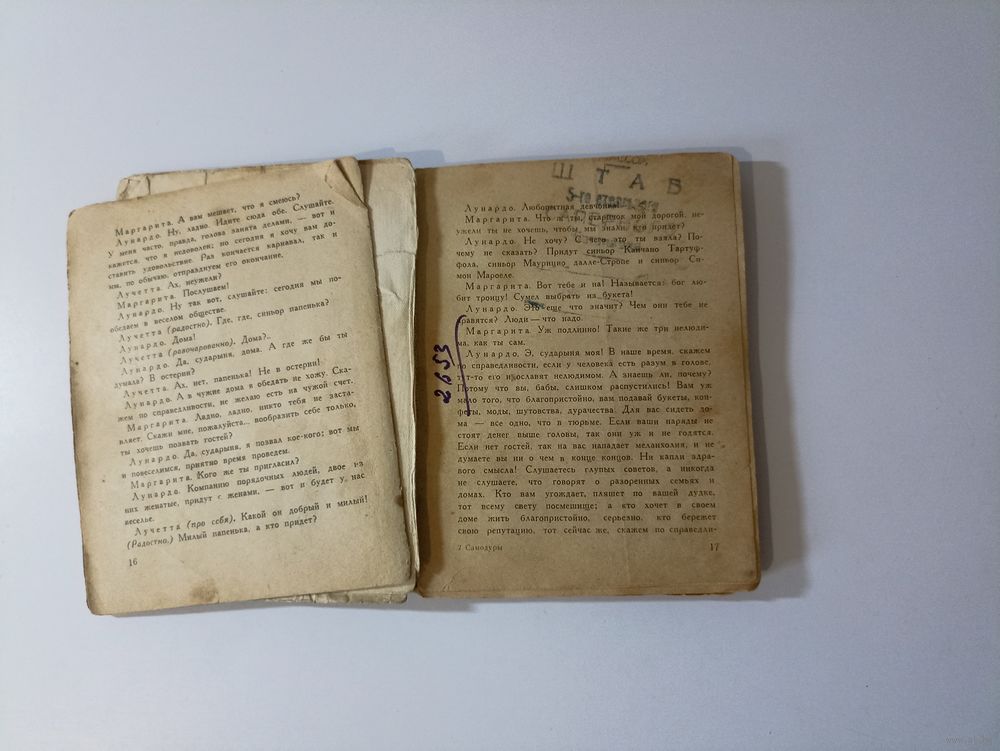 Маргарита. А вам мешает, что я смеюсь?
Лунардо. Ну, ладно. Идите сюда обе. Слушайте.
У меня часто, правда, голова занята делами, — вот и
кажется, что я недоволен; но сегодня я хочу вам до-
ставить удовольствие. Раз кончается карнавал, так и
мы, по обычаю, отпразднуем его окончание.
Лучетта. Ах, неужели?
Маргарита. Послушаем!
Лунардо. Ну так вот, слушайте: сегодня мы по-
обедаем в веселом обществе.
Лучетта (радостно). Где, где, синьор папенька?
Лунардо. Дома!
Лучетта (разочарованно). Дома?..
Лунардо. Да, сударыня, дома. А где же бы ты
думала? В остерии?
Лучетта. Ах, нет, папенька! Не в остерии!
Лунардо. А в чужие дома я обедать не хожу. Ска-
жем по справедливости, не желаю есть на чужой счет.
Маргарита. Ладно, ладно, никто тебя не заста-
вляет. Скажи мне, пожалуйста... вообразить себе только,
ты хочешь позвать гостей?
Лунардо. Да, сударыня, я позвал кое-кого; вот мы
и повеселимся, приятно время проведем.
Маргарита. Кого же ты пригласил?
Лунардо. Компанию порядочных людей, двое из
них женатые, придут с женами, — вот и будет у нас
веселье.
Лучетта (про себя). Какой он добрый и милый!
(Радостно.) Милый папенька, а кто придет?
16
ШТАБ
5-го
Лунардо. Любопытная девчонка!
Маргарита. Что ж ты, старичок мой дорогой, не-
ужели ты не хочешь, чтобы мы знали, кто придет?
Лунардо. Не хочу? С чего это ты взяла? По-
чему не сказать? Придут синьор Канчано Тартуф-
фола, синьор Маурицио далле-Стропе и синьор Си-
мон Мароеле.
Маргарита. Вот тебе и на! Называется: бог лю-
бит троицу! Сумел выбрать из букета!
Лунардо. Это еще что значит? Чем они тебе не
нравятся? Люди — что надо.
Маргарита. Уж подлинно! Такие же три нелюди-
ма, как ты сам.
Лунардо. Э, сударыня моя! В наше время, скажем
по справедливости, если у человека есть разум в голове,
тут-то его и ославят нелюдимом. А знаешь ли, почему?
Потому что вы, бабы, слишком распустились! Вам уж
мало того, что благопристойно, вам подавай букеты, кон-
феты, моды, шутовства, дурачества. Для вас сидеть до-
ма — все одно, что в тюрьме. Если ваши наряды не
стоят денег выше головы, так они уж и не годятся.
Если нет гостей, так на вас нападает меланхолия, и не
думаете вы ни о чем в конце концов. Ни капли здра-
вого смысла! Слушаетесь глупых советов, а никогда
не слушаете, что говорят о разоренных семьях и
домах. Кто вам угождает, пляшет по вашей дудке,
тот всему свету посмешище; а кто хочет в своем
доме жить благопристойно, серьезно, кто бережет
свою репутацию, тот сейчас же, скажем по справедли-
2 Самодуры
17
2653